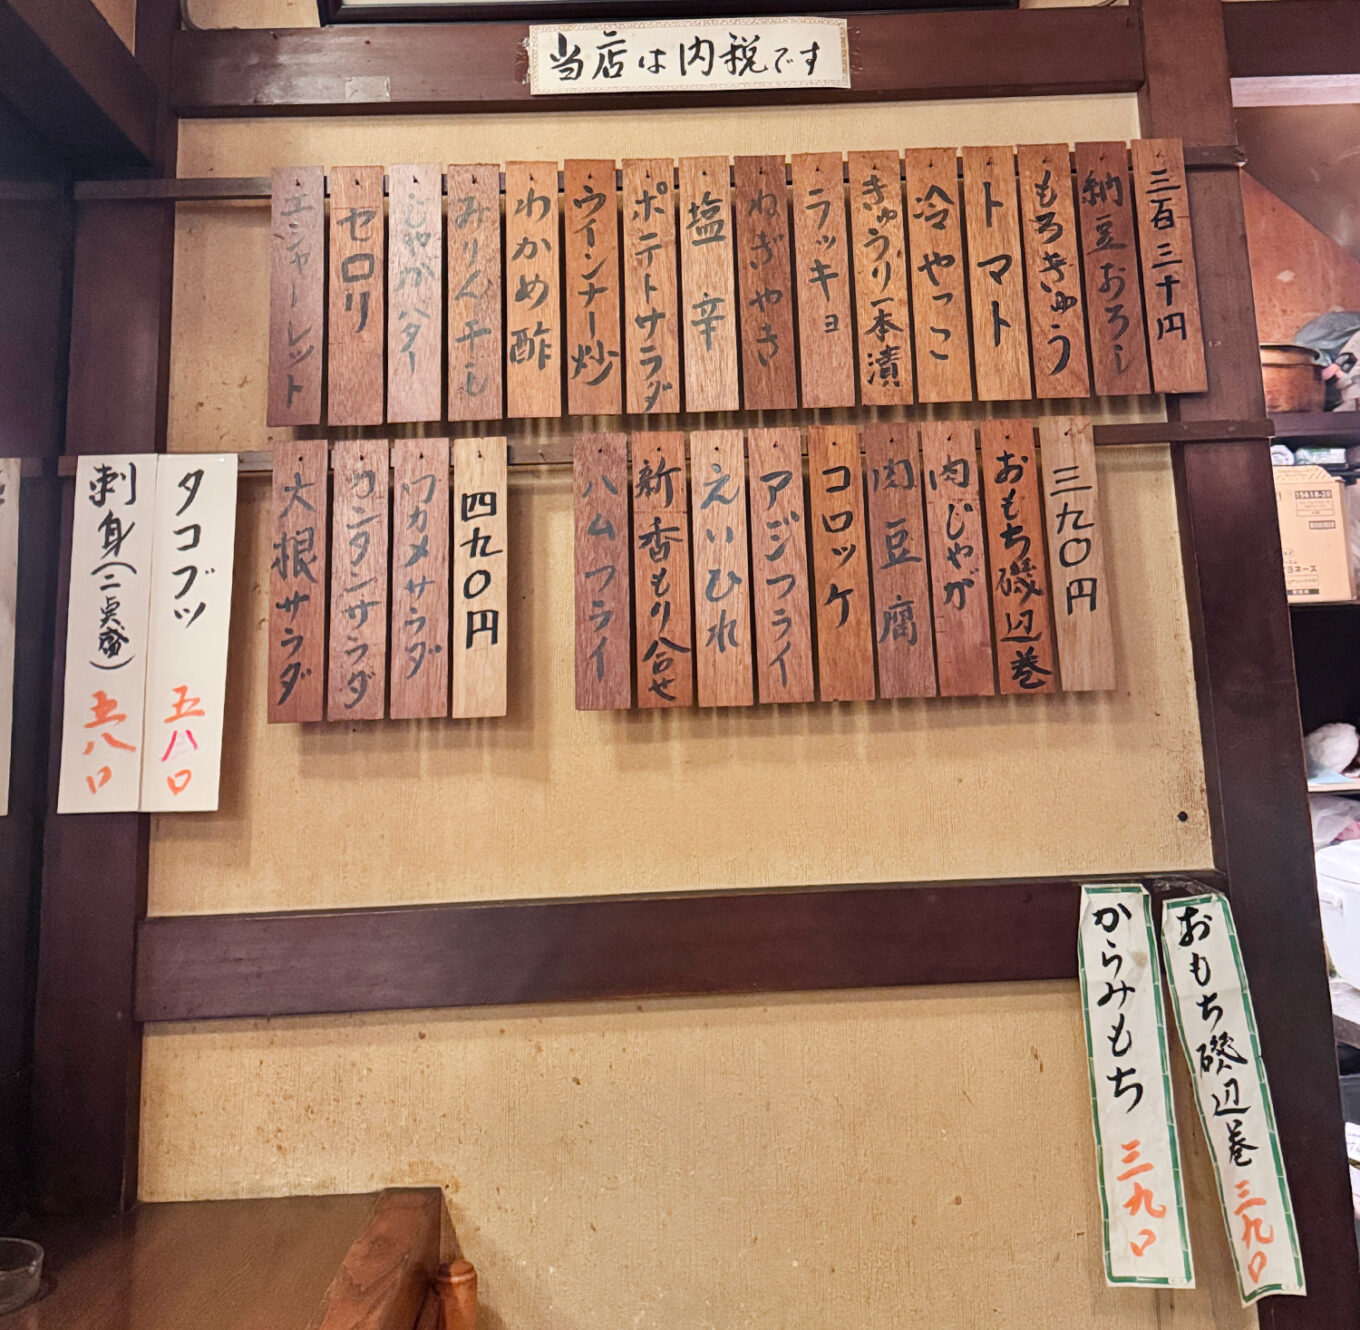 当店は内税です
三百三十円
納豆おろし
もろきゅう
トマト
冷やっこ
きゅうり一本漬
ラッキョ
ねぎやき
塩辛
ポテトサラダ
ウインナー炒
わかめ酢
みりん干し
じゃがバター
セロリ
エシャーレット
三九〇円
おもち磯辺巻
肉じゃが
肉豆腐
コロッケ
アジフライ
えいひれ
新香もり合せ
ハムフライ
四九〇円
ワカメサラダ
カンタンサラダ
大根サラダ
タコブツ
五八〇
刺身(二点盛)
五八〇
おもち磯辺巻 三九〇
からみもち 三九〇